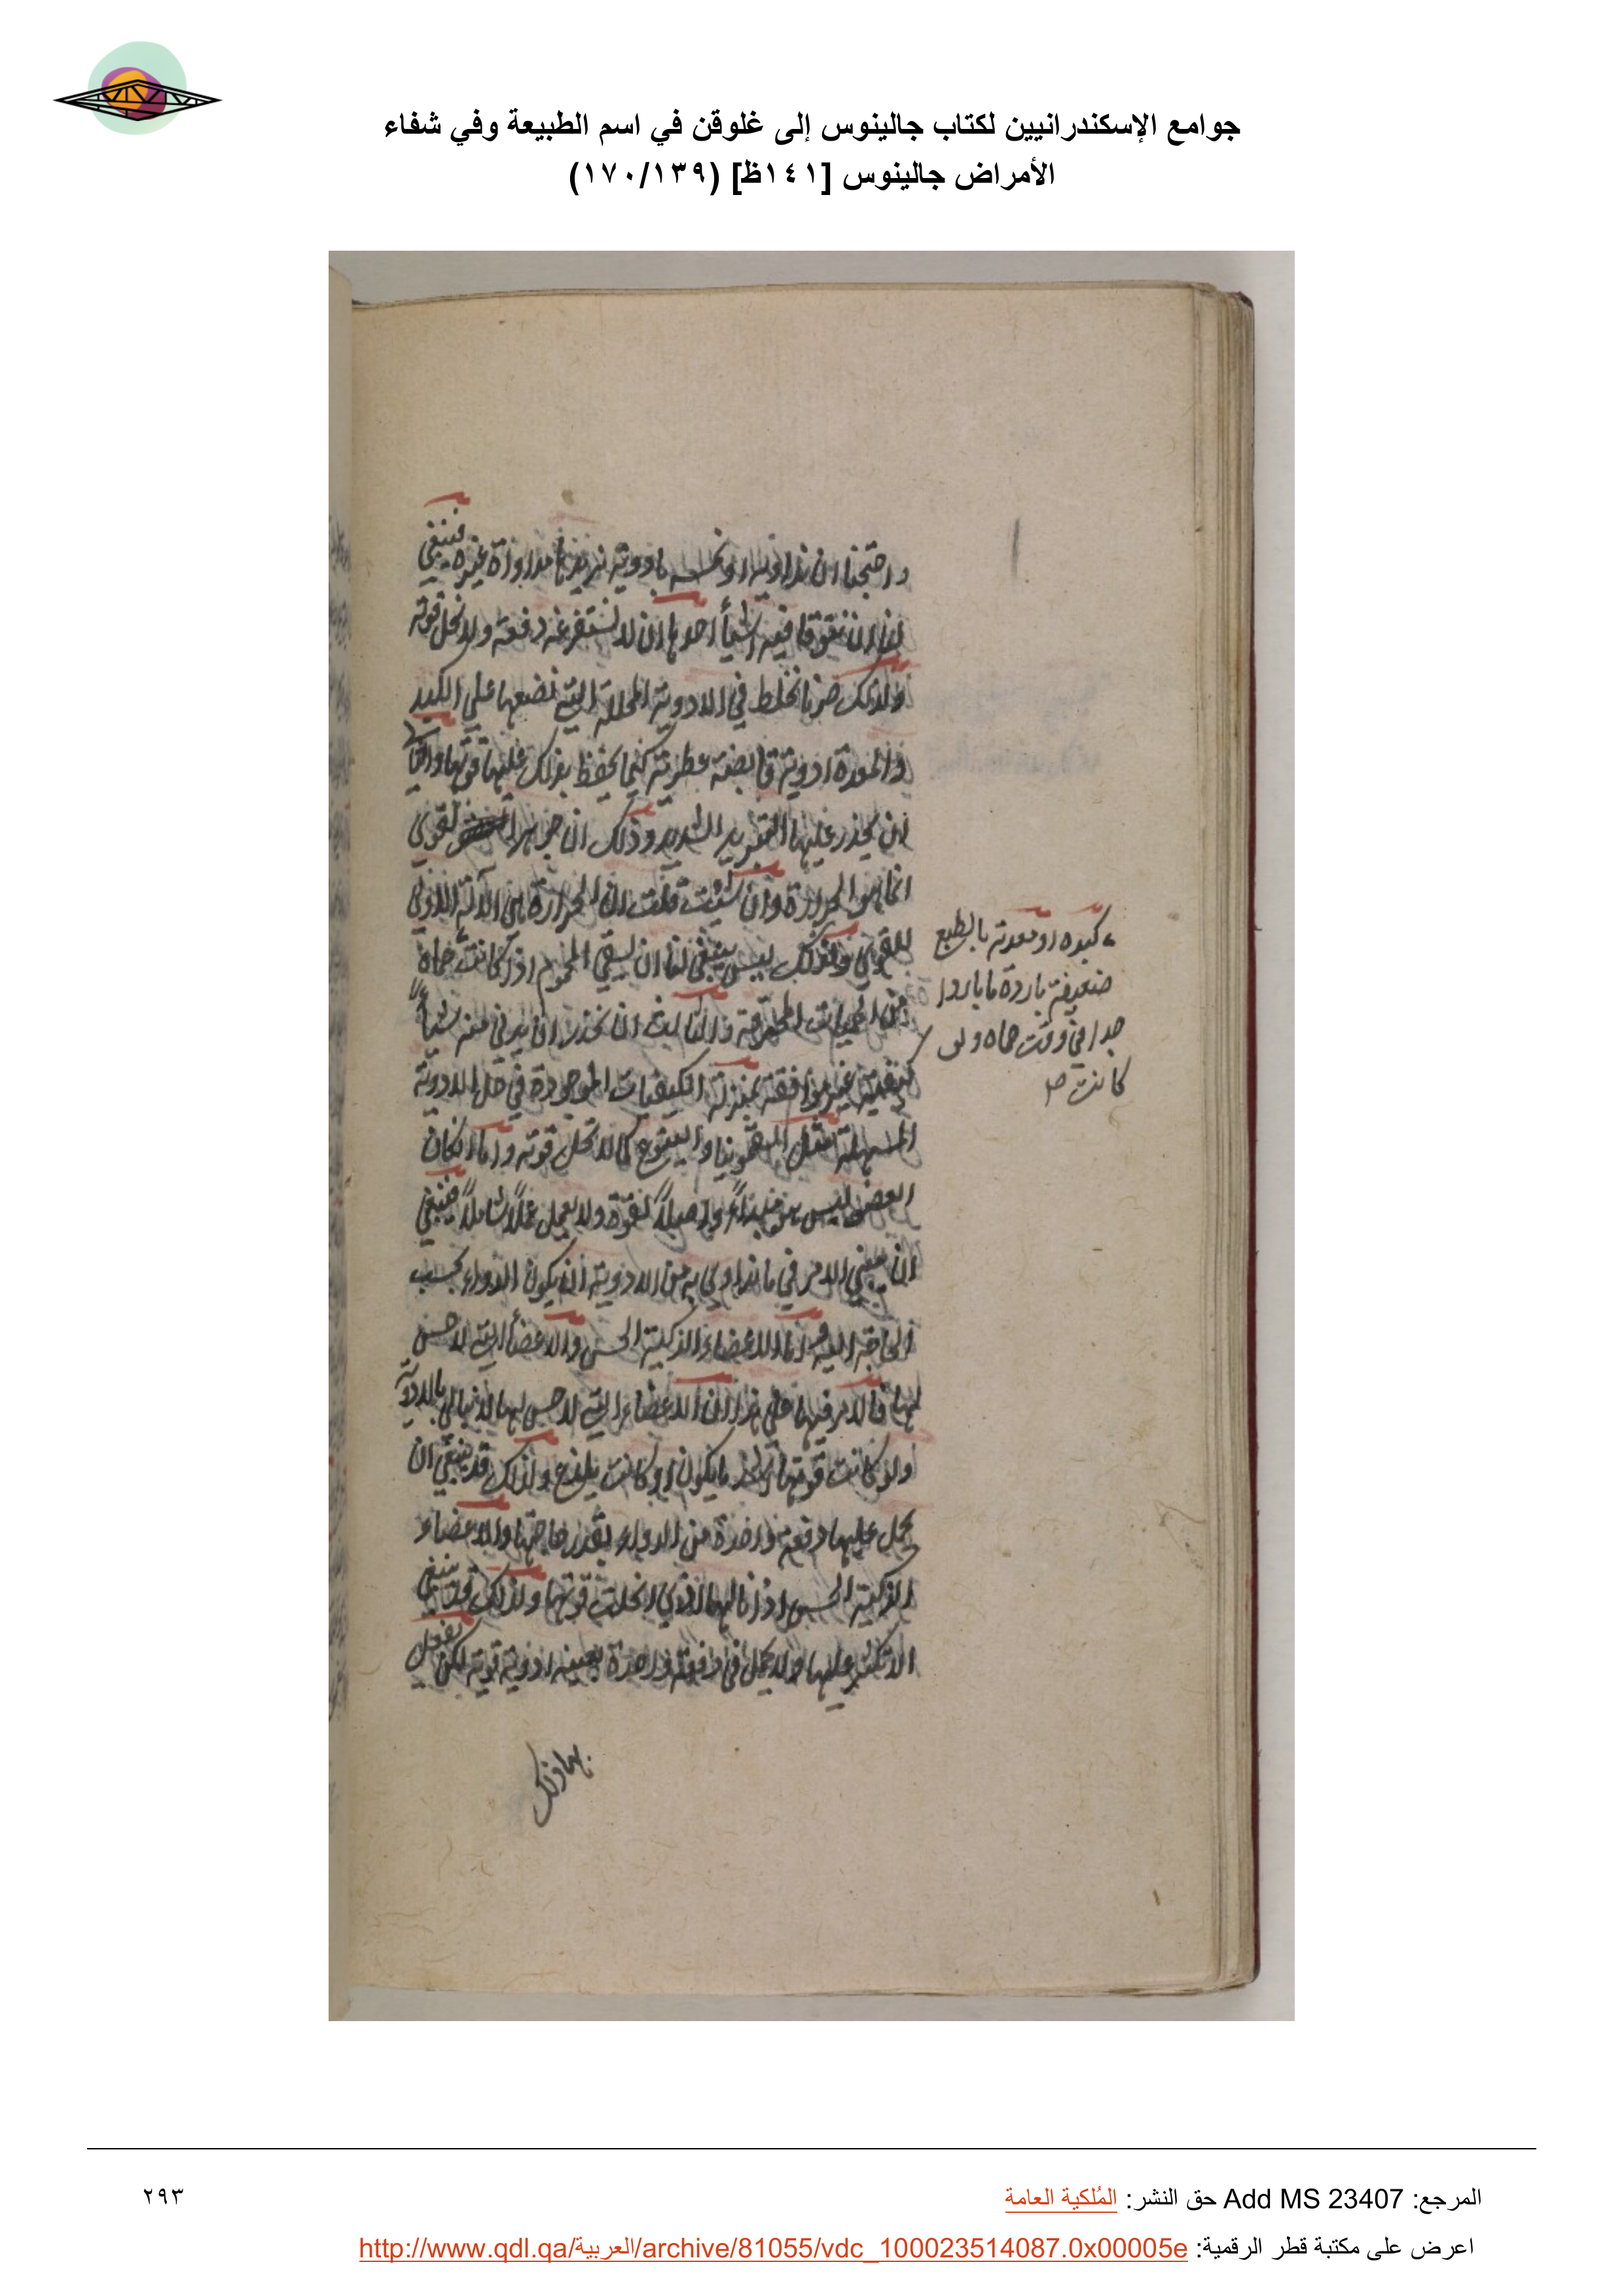 جوامع الإسكندرانيين لكتاب جالينوس إلى غلوقن في اسم الطبيعة وفي شفاء
الأمراض جالينوس [١٤١ظ] (١٧٠/١٣٩)
واحتجنا ان نداويه او بادوية نريد بها مداواة غيره فينبغي
لنا ان نتوقا فيه اشيأ احدها ان لا نستفرغه دفعة ولا نحل قوته
ولذلك صرنا نخلط في الادوية المحللة التي نضعها على الكبد
والمعدة ادوية قابضة عطرية كيما يحفظ بذلك عليها قوتها والثاني
ان يحذر عليها التبريد الشديد وذلك ان جوهر القوى
انما هو الحرارة وان شئت قلت ان الحرارة هي الآلة الاولى
للقوى ولذلك ليس ينبغي لنا ان نسقي المحموم اذا كانت حماه
من الحميات المحرقة والثالث ان نحذر ان يدنى منه شيأ
كيفيته غير موافقة بمنزلة الكيفيات الموجودة في كل الادوية
المسهلة مثل السقمونيا واليتوع كي لا تحل قوته واما ان كان
العضو ليس هو مبداء ولا اصلاً لقوة ولا يعمل عملاً شاملاً فينبغي
ان يبنى الامر في ما نداوي به من الادوية ان يكون الدواء بحسب
الحاجة اليه واما الاعضاء الذكية الحس والاعضأ التي لا حس
لها فالامر فيها على هذا ان الاعضاء التي لا حس لها لا تبالي بالادوية
ولو كانت قوتها ما يكون او كانت يلذع ولذلك قد ينبغي ان
يحمل عليها دفعة واحدة من الدواء بقدر حاجتها والاعضاء
الذكية الحس اذا نالها الاذى انحلت قوتها ولذلك قد ينبغي
الا تكثر عليها ولا يحمل في دفعة واحدة ادوية قوية لكن يفعل
بها ذلك
كبده او معدته بالطبع
ضعيفة باردة ما باردا
جدا في وقت حماه ولو
كانت
المرجع: Add MS 23407 حق النشر: المُلكية العامة
٢٩٣
اعرض على مكتبة قطر الرقمية: http://www.qdl.qa/العربية/archive/81055/vdc_100023514087.0x00005e